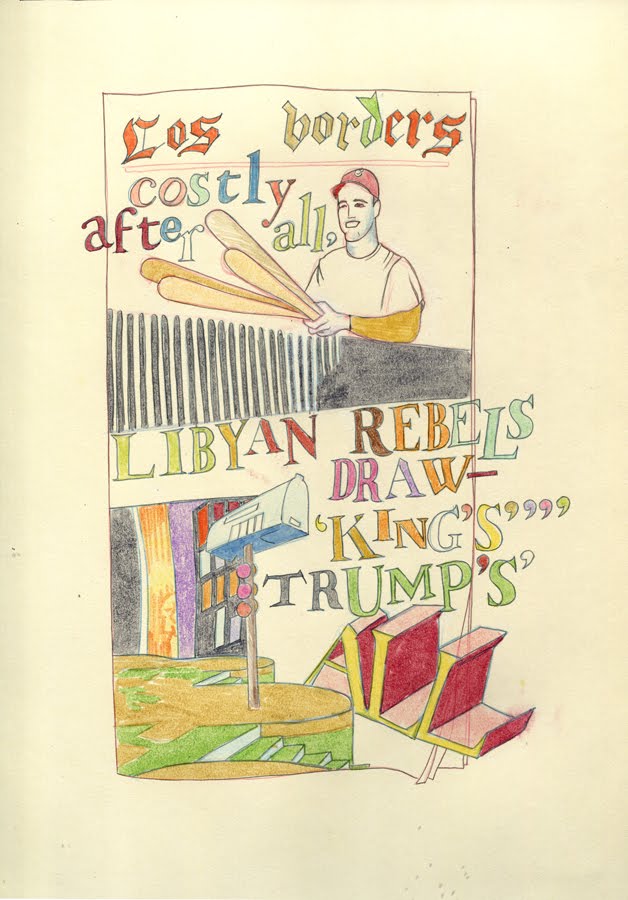 Los borders
costly
after all,
LIBYAN REBELS
DRAW–
‘KING’S’’’’
TRUMP’S’
ALL